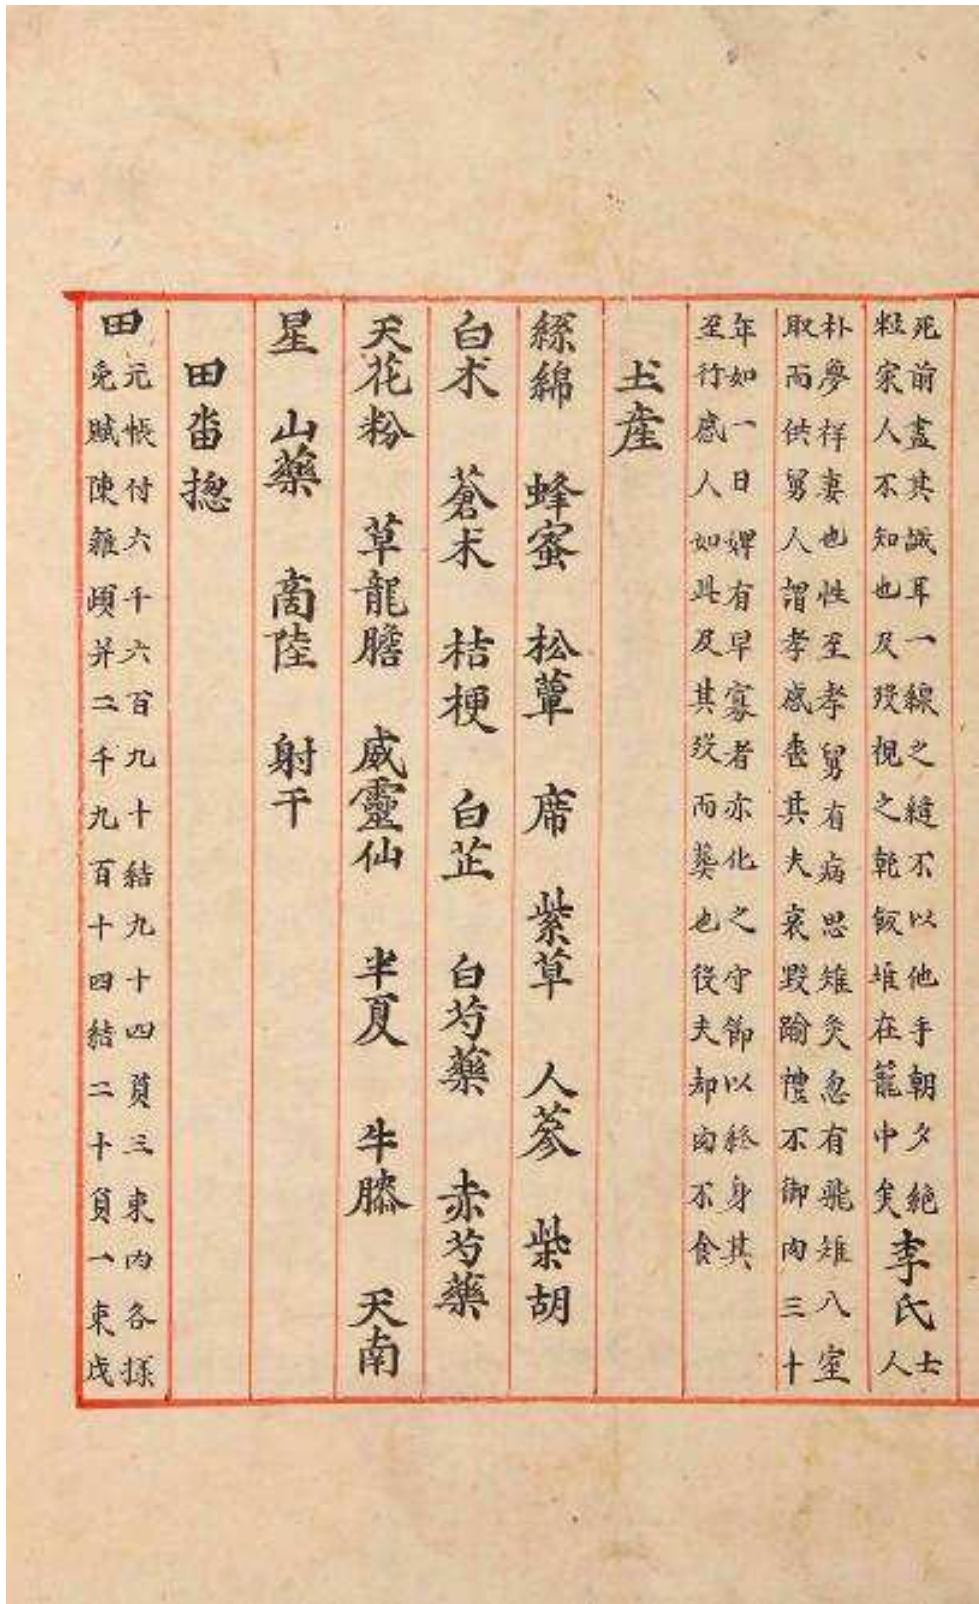 死前盡其誠耳一線之縫不以他手朝夕絶
粒家人不知也及歿視之乾飯堆在籠中矣
李氏
士
人
朴夢祥妻也性至孝舅有病思雉炙忽有飛雉入室
取而供舅人謂孝感喪其夫哀毀踰禮不御肉三十
年如一日婢有早寡者亦化之守節以終身其
至行感人如此及其歿而葬也役夫却肉不食
土産
絲綿 蜂蜜 松蕈 席 紫草 人蔘 柴胡
白朮 蒼朮 桔梗 白芷 白芍藥 赤芍藥
天花粉 草龍膽 威靈仙 半夏 牛膝 天南
星 山藥 商陸 射干
田畓摠
田
元帳付六千六百九十結九十四負三束內各㨾
免賦陳雜頉并二千九百十四結二十負一束戊